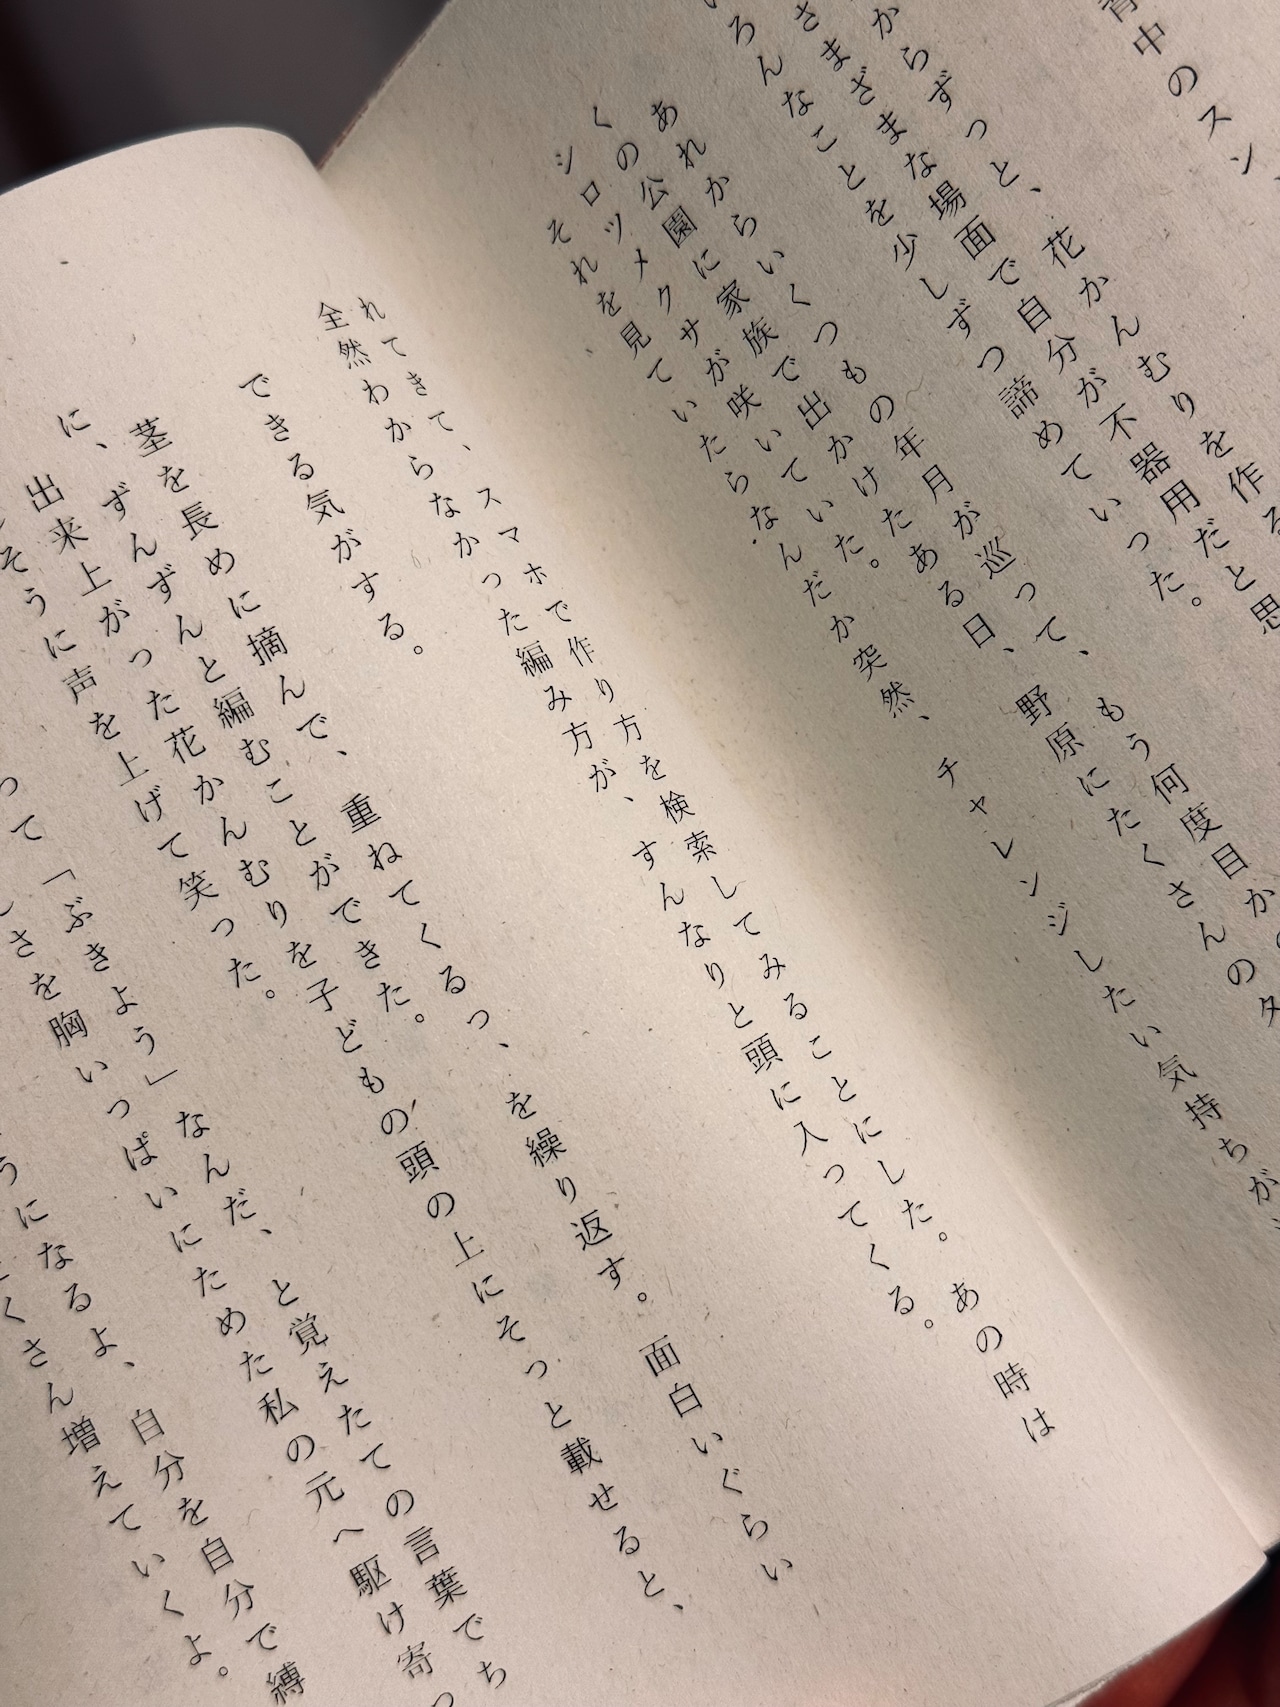 中のスン
からずっと、花かんむりを作る
さまざまな場面で自分が不器用だと思
ろんなことを少しずつ諦めていった。
あれからいくつもの年月が巡って、もう何度目かの
くの公園に家族で出かけたある日、野原にたくさんのタ
シロツメクサが咲いていた。
それを見ていたらなんだか突然、チャレンジしたい気持ちが
れてきて、スマホで作り方を検索してみることにした。あの時は
全然わからなかった編み方が、すんなりと頭に入ってくる。
できる気がする。
茎を長めに摘んで、重ねてくるっ、を繰り返す。面白いぐらい
に、ずんずんと編むことができた。
出来上がった花かんむりを子どもの頭の上にそっと載せると、
そうに声を上げて笑った。
って「ぶきよう」なんだ、と覚えたての言葉でち
さを胸いっぱいにためた私の元へ駆け寄っ
うになるよ、自分を自分で縛
くさん増えていくよ。